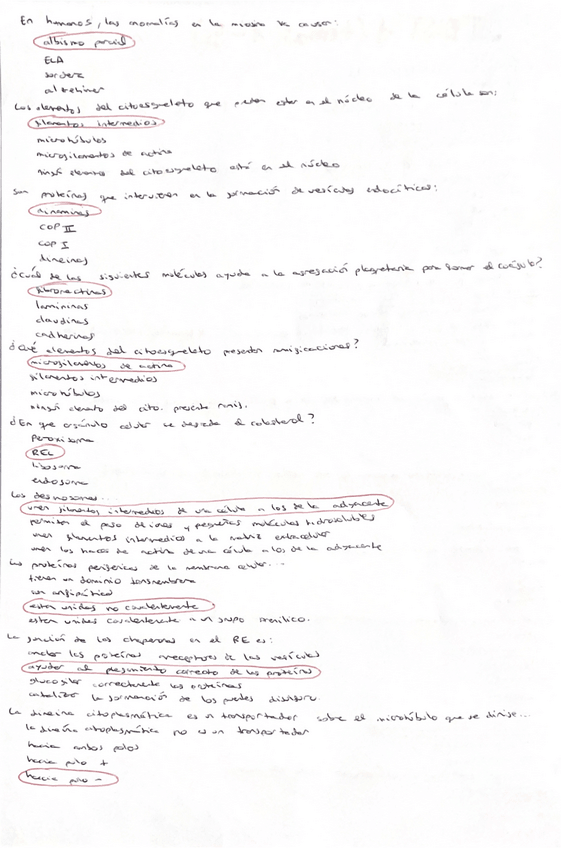 En humanos, las anomalías en la miosina Va causan:
albismo parcial
ELA
sordera
alzheimer
Los elementos del citoesqueleto que pueden estar en el núcleo de la célula son:
filamentos intermedios
microtúbulos
microfilamentos de actina
ningún elemento del citoesqueleto está en el núcleo
Son proteínas que intervienen en la formación de vesículas endocíticas:
dinaminas
COP II
COP I
dineinas
¿Cuál de las siguientes moléculas ayuda a la agregación plaquetaria para formar el coágulo?
fibronectinas
lamininas
claudinas
cadherinas
¿Qué elementos del citoesqueleto presentan ramificaciones?
microfilamentos de actina
filamentos intermedios
microtúbulos
ningún elemento del cito. presenta ramif.
¿En que orgánulo celular se degrada el colesterol?
Peroxisoma
REL
lisosoma
endosoma
Los desmosomas...
unen filamentos intermedios de una célula a los de la adyacente
permiten el paso de iones y pequeñas moléculas hidrosolubles
unen filamentos intermedios a la matriz extracelular
unen los haces de actina de una célula a los de la adyacente
Las proteínas periféricas de la membrana celular...
tienen un dominio transmembrana
son anfipáticas
estan unidas no covalentemente
estan unidas covalentemente a un grupo prenílico.
La función de las chaperonas en el RE es:
anclar las proteínas receptoras de las vesículas
ayudar al plegamiento correcto de las proteínas
glucosilar correctamente las proteínas
catalizar la formación de los puentes disulfuro.
La dineina citoplasmática es un transportador sobre el microtúbulo que se dirige...
la dineina citoplasmática no es un transportador
hacia ambos polos
hacia polo +
hacia polo -